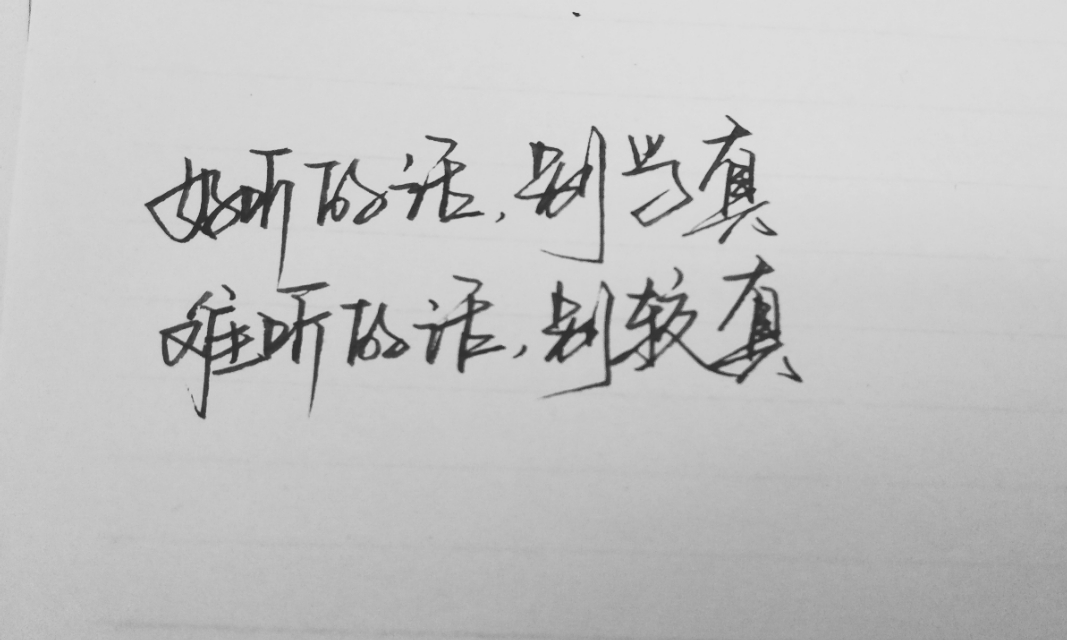 好听的话,别当真
难听的话,别较真